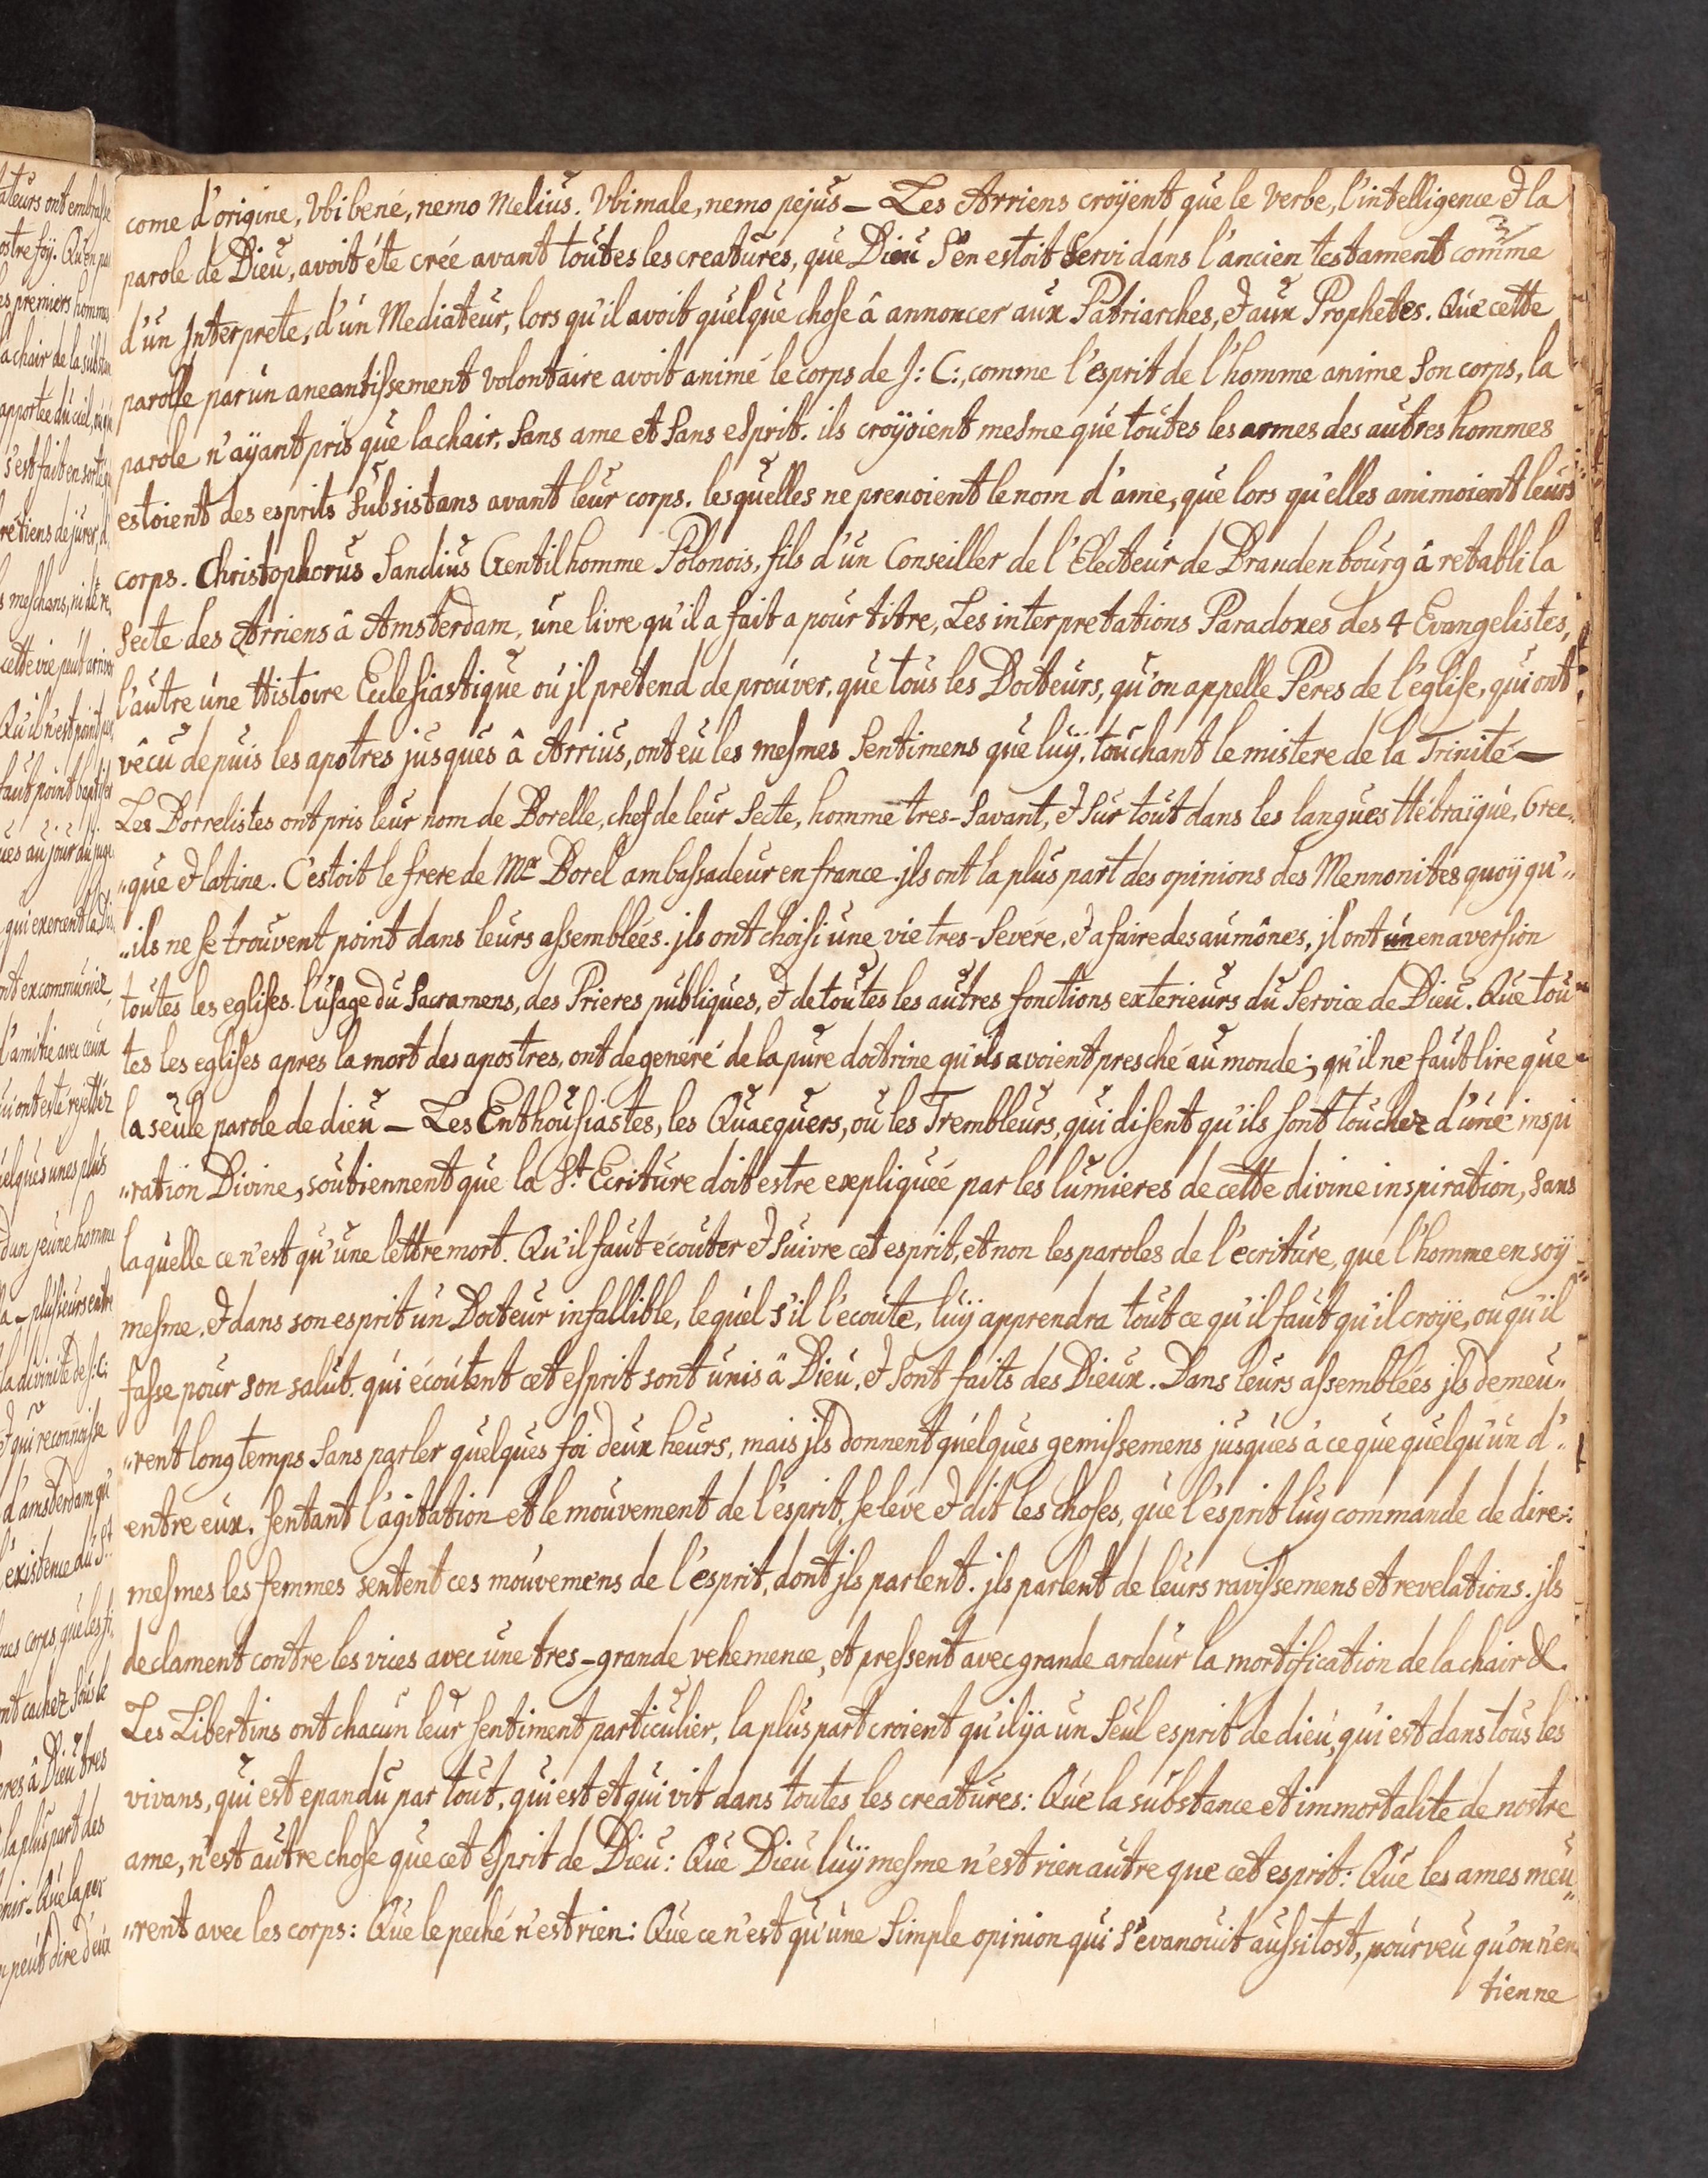 come d'origine, Vbi bené, nemo melius. Vbi male, nemo pejus _ Les Arriens croÿent que le Verbe, l'intelligence & la
parole de Dieu, avoit éte crée avant toutes les creatures, que Dieu S'en estoit Servi dans l'ancien testament comme
d'un Interprete, d'un Mediateur, lors qu'il avoit quelque chose â annoncer aux Patriarches, & aux Prophetes. Que cette
parolle par un aneantissement volontaire avoit animé le corps de J: C:, comme l'esprit de l'homme anime Son corps, la
parole n'aÿant pris que la chair, Sans ame et Sans esprit. ils croÿoient mesme que toutes les armes des autres hommes
estoient des esprits Subsistans avant leur corps. lesquelles ne prenoient le nom d'ame, que lors qu'elles animoient leurs
corps. Christophorus Sandius Gentilhomme Polonois, fils d'un Conseiller de l'Electeur de Brandenbourg â retabli la
Secte des Arriens â Amsterdam, une livre qu'il a fait a pour titre, Les interpretations Paradoxes des 4 Evangelistes,
l'autre une Histoire Ecclesiastique ou jl prétend de prouver, que tous les Docteurs, qu'on appelle Pères de l'église, qui ont
vêcu depuis les apotres jusques â Arrius, ont eu les mesmes Sentimens que luÿ, touchant le mistere de la Trinité _
Les Borrelistes ont pris leur nom de Borelle, chef de leur Secte, homme tres-Savant, & Sur tout dans les langues Hébraïque, Grec„
„que & latine. C'estoit le frere de Mr Borel ambassadeur en france. jls ont la plus part des opinions des Mennonites quoÿ qu'„
„ils ne se trouvent point dans leurs assemblées. jls ont choisi une vie tres-Sevére, & a faire des aumônes, jl ont un en aversion
toutes les eglises. l'usage du Sacramens, des Prieres publiques, & de toutes les autres fonctions exterieurs du Service de Dieu. Que tou„
tes les eglises apres la mort des apostres, ont degenéré de la pure doctrine qu'ils avoient presché au monde; qu'il ne faut lire que
la seule parole de dieu _ Les Enthousiastes, les Quacquers, ou les Trembleurs, qui disent qu'ils sont touchez d'une inspi
„ration Divine, soutiennent que la St. Ecriture doit estre expliqueé par les lumieres de cette divine inspiration, sans
laquelle ce n'est qu'une lettre mort. Qu'il faut écouter & Suivre cet esprit, et non les paroles de l'ecriture, que l'homme en soÿ„
mesme, & dans son esprit un Docteur infallible, lequel s'il l'ecoute, luÿ apprendra tout ce qu'il faut qu'il croÿe, ou qu'il
fasse pour son salut. qui écoutent cet esprit sont unis â Dieu, & Sont faits des Dieux. Dans leurs assembleés jls demeu„
„rent long temps Sans parler quelques foi deux heurs, mais jls donnent quelques gemissemens jusques à ce que quelqu'un d'„
entre eux, sentant l'agitation et le mouvement de l'esprit, se léve & dit les choses, que l'ésprit luy commande de dire:
mesmes les femmes sentent ces mouvemens de l'ésprit, dont jls parlent. jls parlent de leurs ravissemens et revelations. jls
declament contre les vices avec une tres-grande vehemence, et pressent avec grande ardeur la mortification de la chair &.
Les Libertins ont chacun leur sentiment particulier, la plus part croient qu'il ÿ a un Seul esprit de dieu, qui est dans tous les
vivans, qui est epandu par tout, qui est et qui vit dans toutes les creatures: Que la substance et immortalite de nostre
ame, n'est autre chose que cet esprit de Dieu: Que Dieu luÿ mesme n'est rien autre que cet esprit: Que les ames meu„
„rent avec les corps: Que le peché n'est rien: Que ce n'est qu'une Simple opinion qui S'evanouit aussitost, pourveu qu'on n'en
tienne